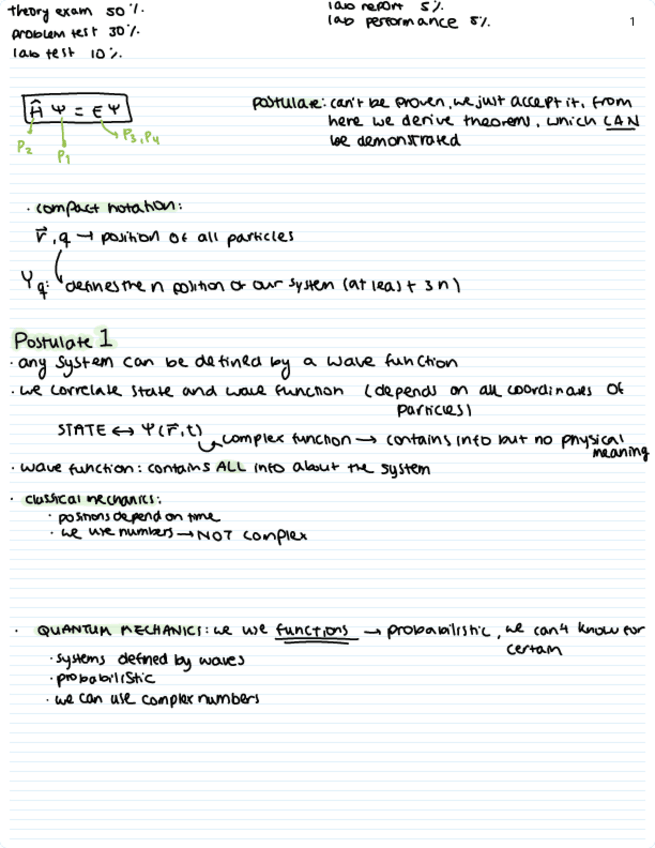 theory exam 50%.
problem test 30%.
lab test 10%.
lab report 5%.
lab performance 5%.
1
Ĥ Ψ = E Ψ
P2
P1
P3, P4
postulate: can't be proven, we just accept it, from
here we derive theorems, which CAN
be demonstrated
· compact notation:
r⃗, q → position of all particles
Ψq: defines the n position of our system (at least 3n)
Postulate 1
· any system can be defined by a wave function
· we correlate state and wave function (depends on all coordinates of
particles)
STATE ↔ Ψ(r⃗,t) complex function → contains info but no physical
meaning
· wave function: contains ALL info about the system
· classical mechanics:
· positions depend on time
· we use numbers → NOT complex
· QUANTUM MECHANICS: we use functions → probabilistic, we can't know for
certain
· systems defined by waves
· probabilistic
· we can use complex numbers